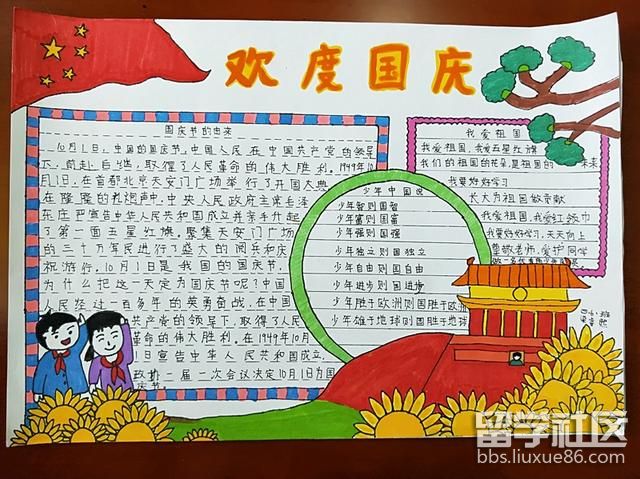 欢度国庆
国庆节的由来
10月1日,中国的国庆节,中国人民在中国共产党的领导
下,前赴后继,取得了人民革命的伟大胜利。1949年10
月1日,在首都北京天安门广场举行了开国大典
在隆隆的礼炮声中,中央人民政府主席毛泽
东庄严宣告中华人民共和国成立并亲手升起
了第一面五星红旗。聚集天安门广场
的三十万军民进行了盛大的阅兵和庆
祝游行。10月1日是我国的国庆节,
为什么把这一天定为国庆节呢?中国
人民经过一百多年的英勇奋战,在中国
共产党的领导下,取得了人民
革命的伟大胜利。在1949年10月
1日宣告中华人民共和国成立.
政协一届二次会议决定10月1日为国
庆节。
少年中国说
少年智则国智
少年富则国富
少年强则国强
少年独立则国独立
少年自由则国自由
少年进步则国进步
少年胜于欧洲则国胜于欧洲
少年雄于地球则国胜于地球
我爱祖国
我爱祖国,我爱五星红旗
我们的祖国的花朵,是祖国的未来
我要好好学习
长大为祖国做贡献
我爱祖国,我爱红领巾
我要好好学习,天天向上
尊敬老师,爱护同学
留学社区
bbs.liuxue86.com